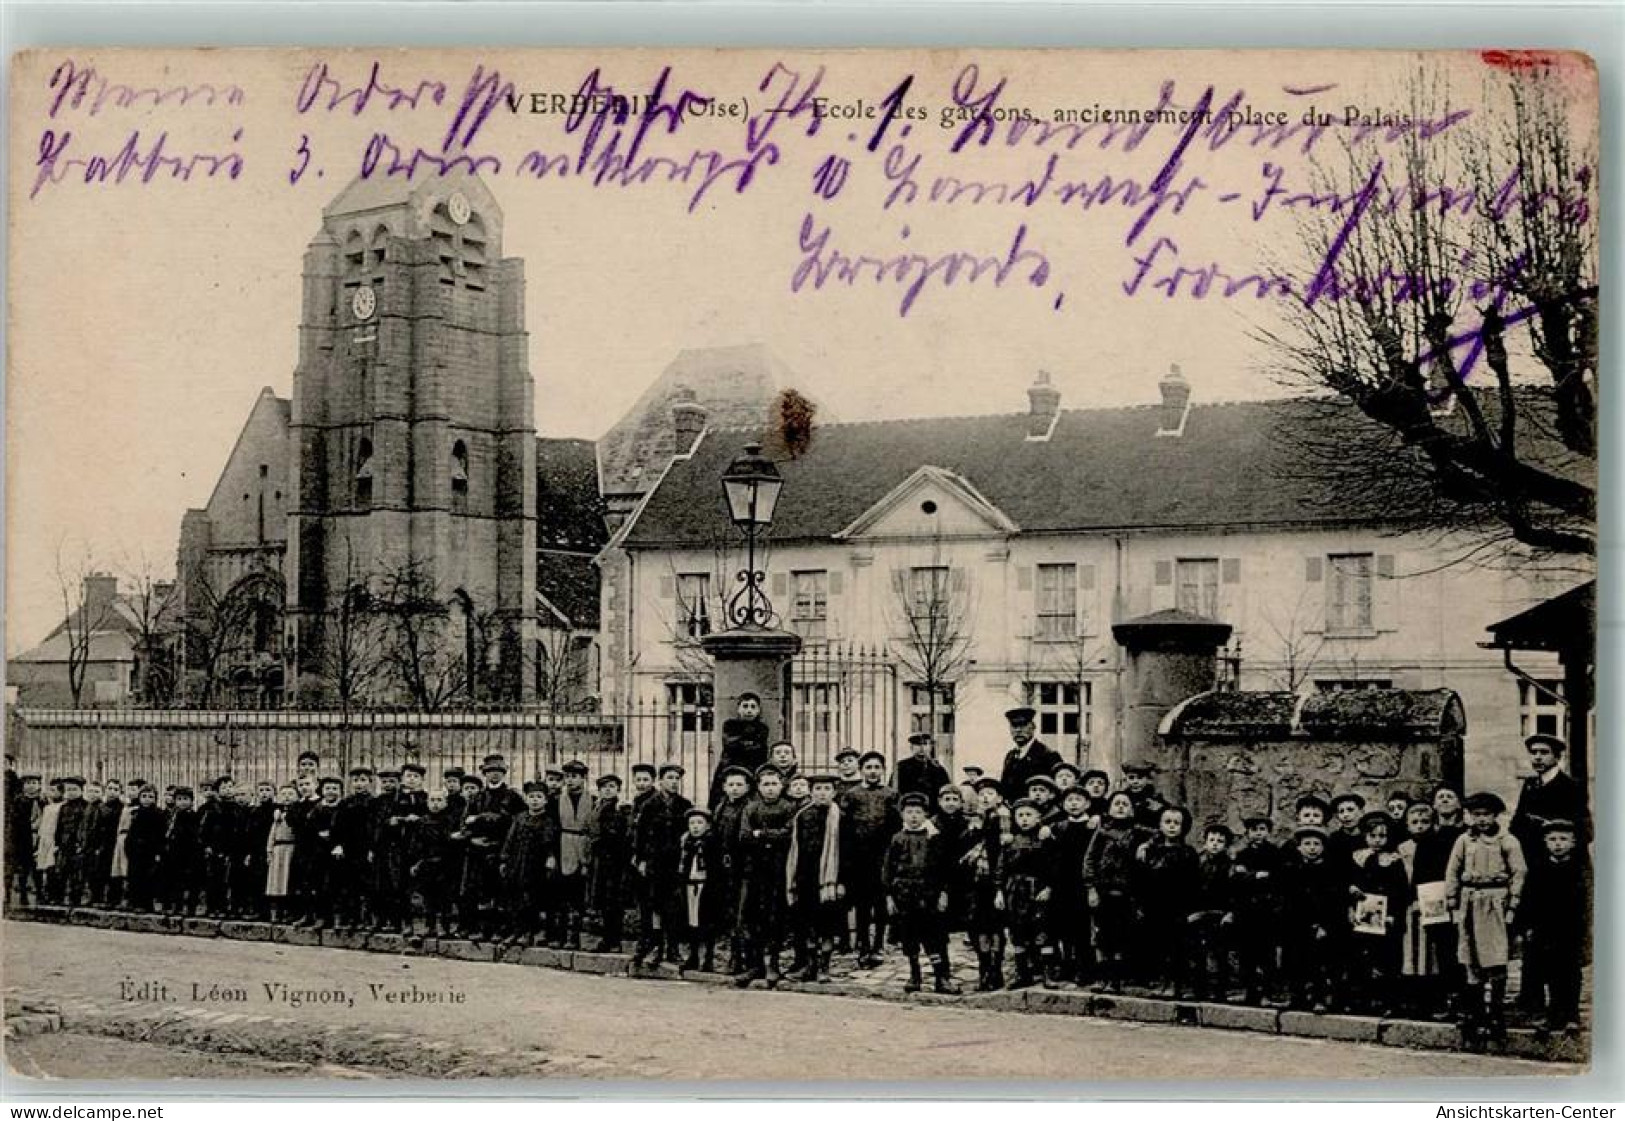 VERBERIE (Oise) — Ecole des garçons, anciennement place du Palais
Meine Adresse 1. Landsturm
Batterie 3. Armeekorps 10 Landwehr-Infantrie
Brigade, Frankreich
Édit. Léon Vignon, Verberie
delcampe.net
Ansichtskarten-Center